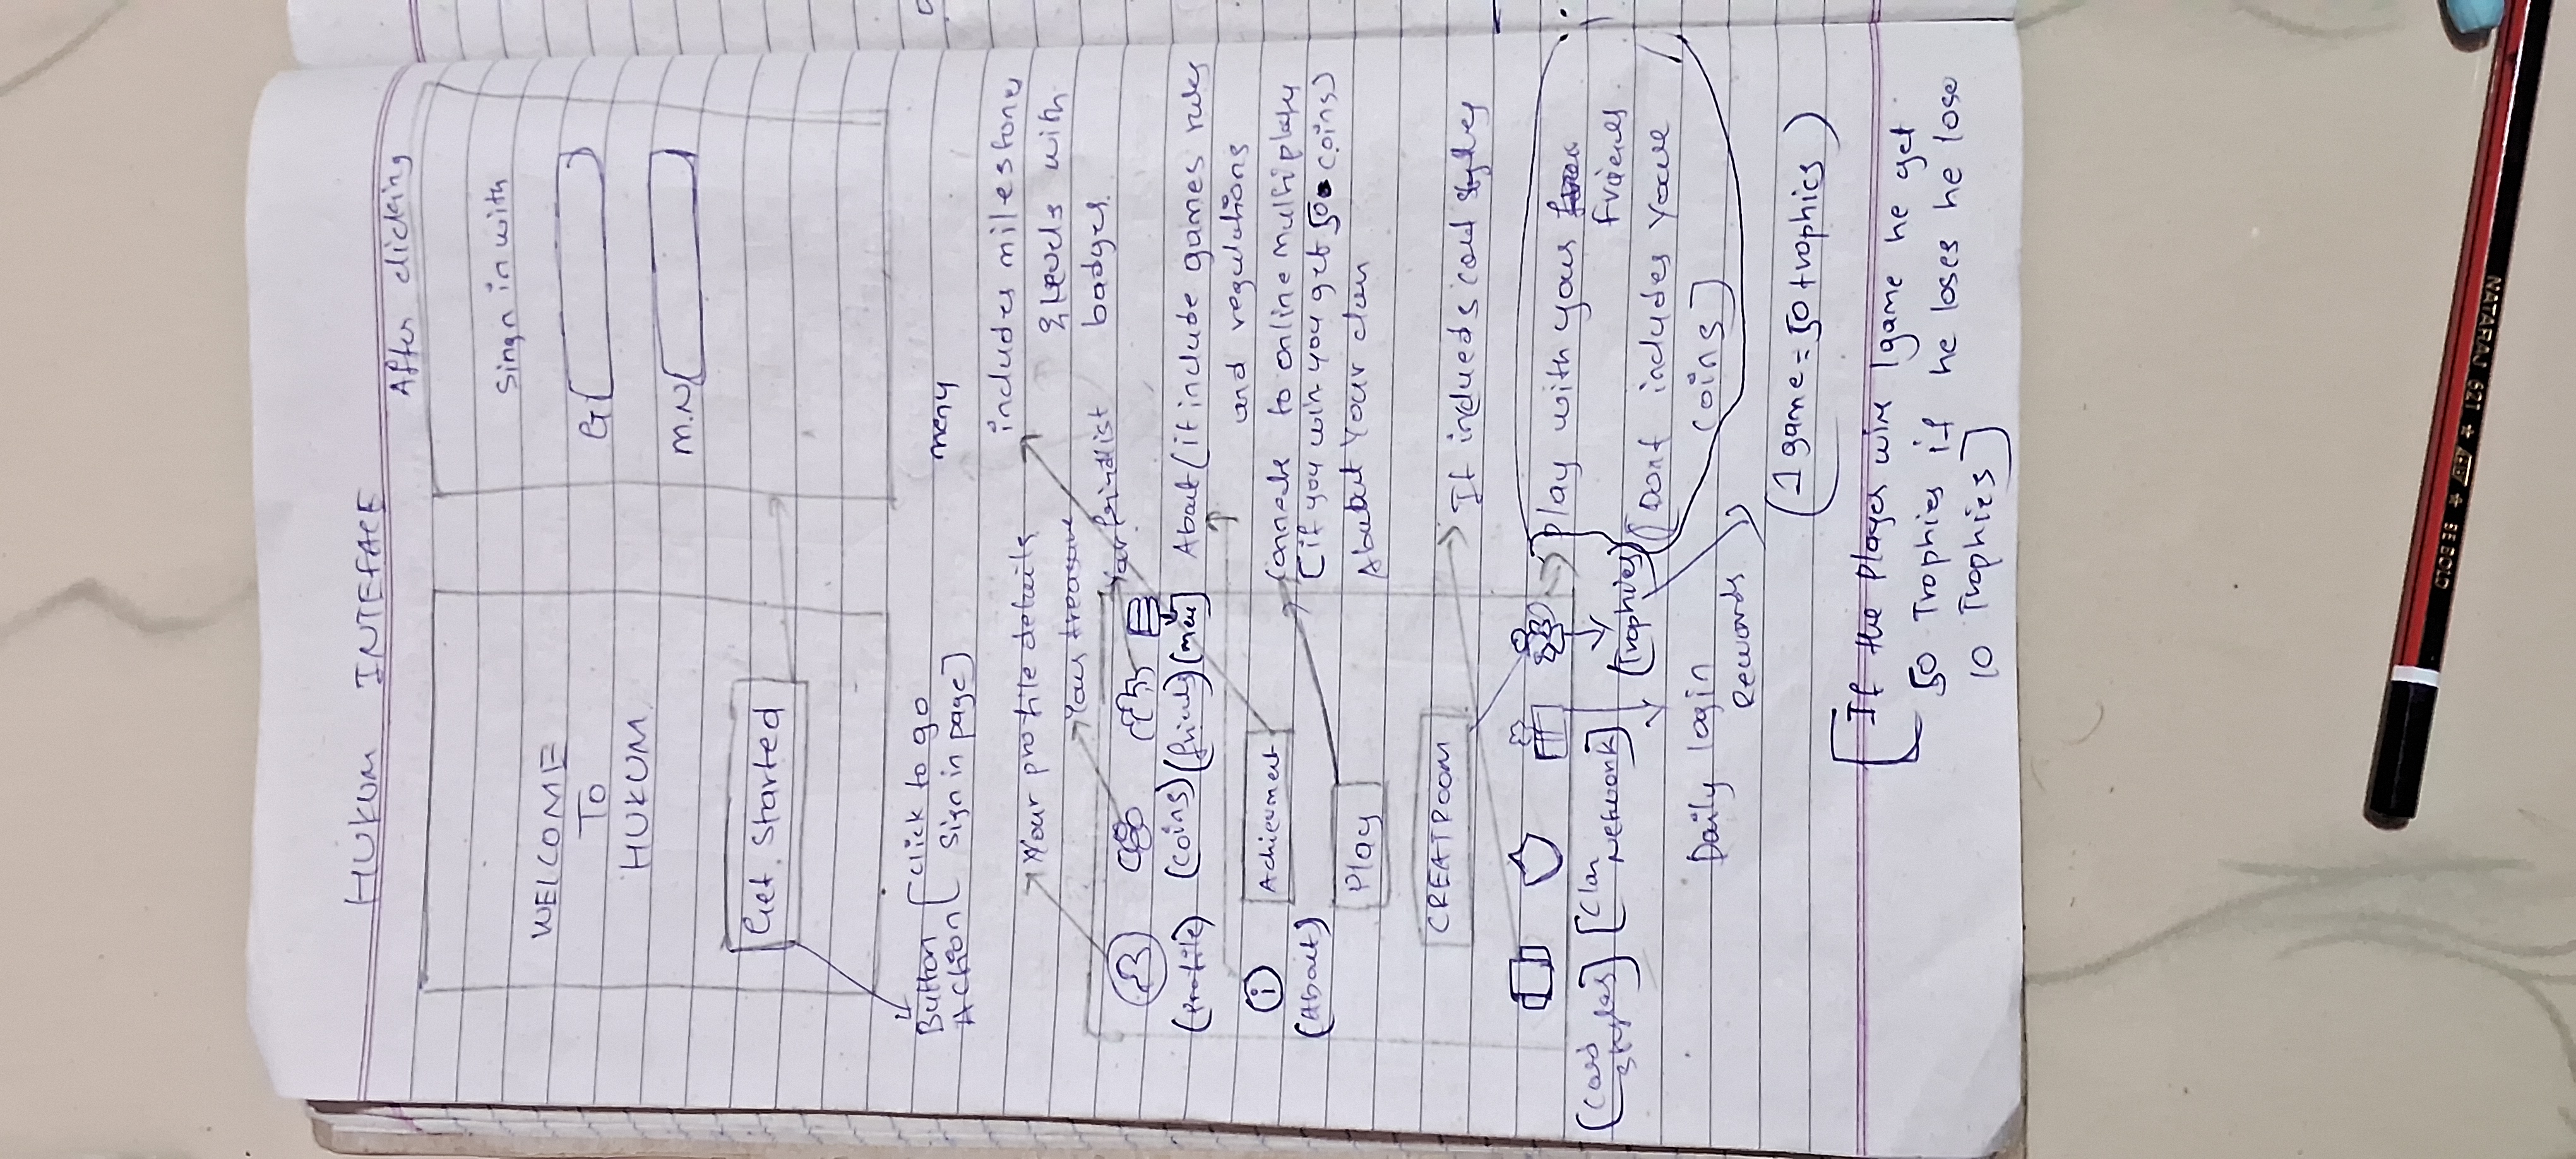 HUKUM INTEFACE
After clicking
WELCOME
TO
HUKUM
Get Started
Singn in with
G
M.N
Button
Action
[click to go
Sign in page]
menu
includes milestones
& Levels with
badges.
Your profile details
Your treasure
Your frindlist
(Profile)
(coins)
(friends)
(menu]
About (it include games rules
and regulations
i
(About)
Achievment
Connects to online multiplayer
(if you win you get 500 coins)
Play
About Your clan
CREATROOM
It inclueds card styles
[Card
Styles]
[Clan
Network]
(Trophies)
Play with your
friends
[Dont includes youre
coins]
Daily login
Rewards
(1 game = 50 trophies)
[If the player wins 1 game he get
50 Trophies if he loses he lose
10 Trophies]
NATARAJ 621 ★ ★ BE BOLD